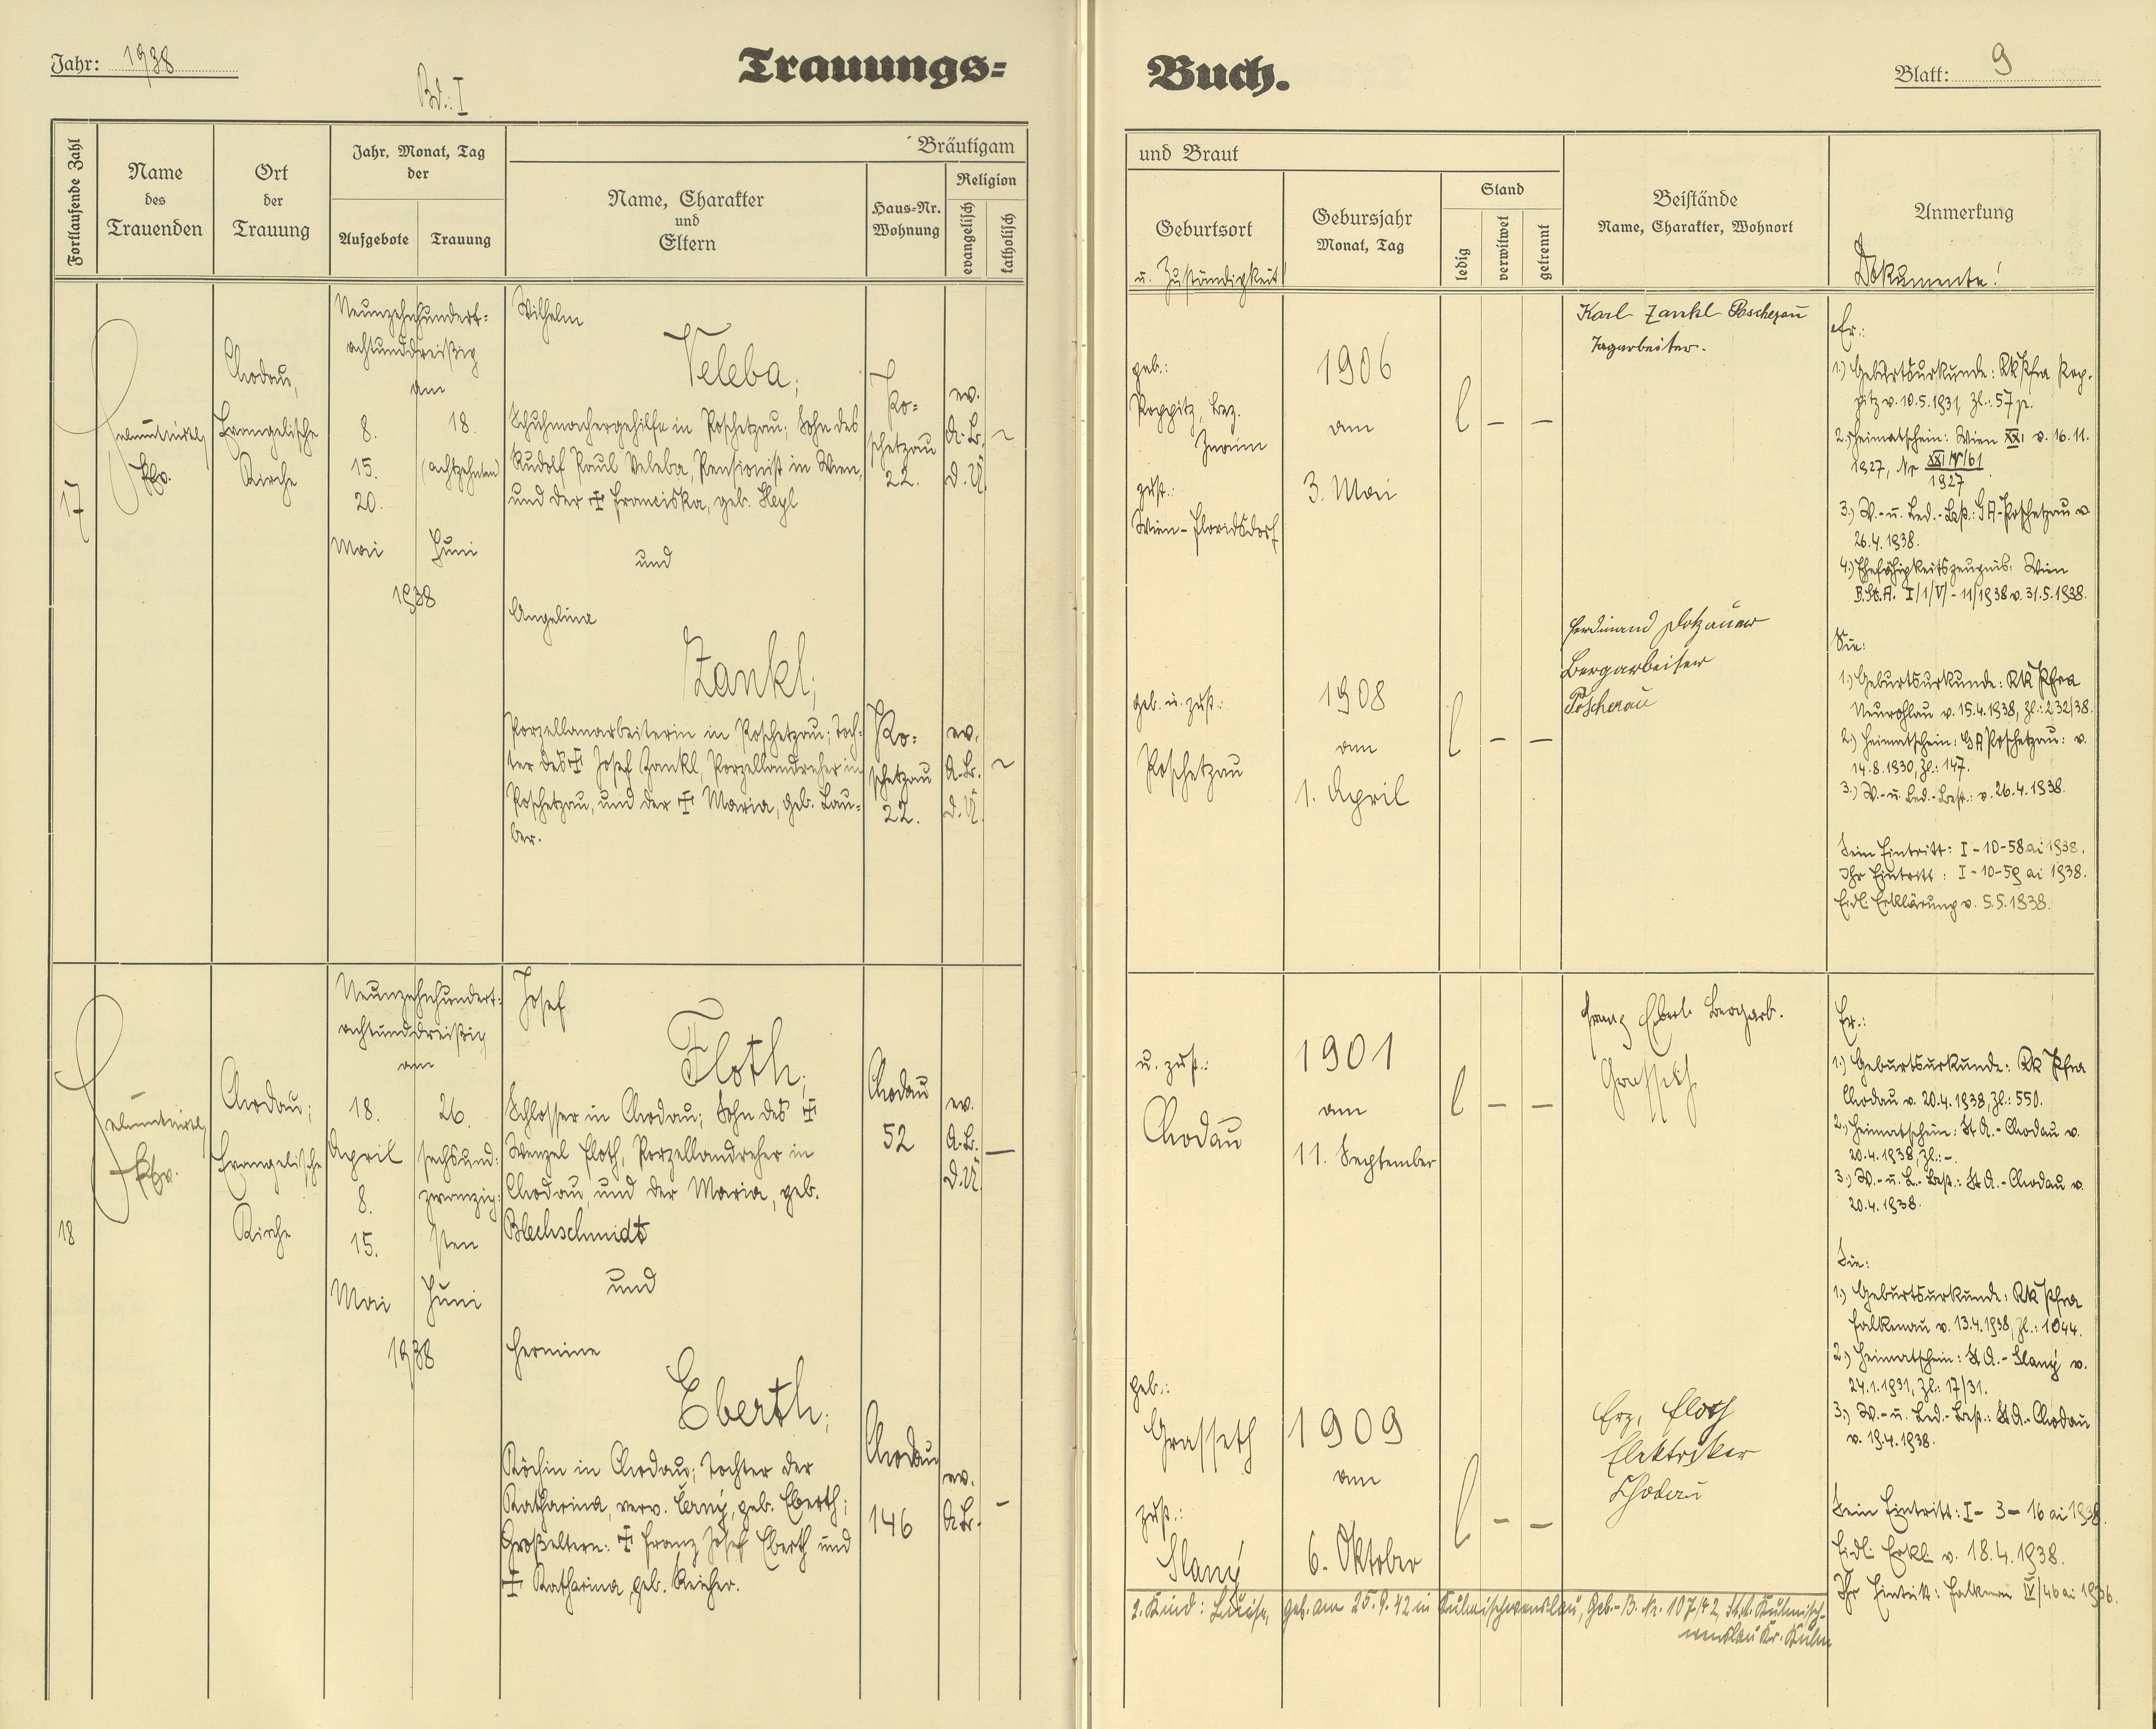 Jahr: 1938
Bd.: I
Trauungs=
Fortlaufende Zahl
Name
des
Trauenden
Ort
der
Trauung
Jahr, Monat, Tag
der
Aufgebote
Trauung
Bräutigam
Name, Charakter
und
Eltern
Haus=Nr.
Wohnung
Religion
evangelisch
katholisch
17
Pfv.
Chodau,
Evangelische
Kirche
Neunzehnhundert=
achtunddreißig
am
8.
15.
20.
Mai
18.
(achtzehnten)
Juni
1938
Wilhelm
Veleba,
Schuhmachergehilfe in Poschetzau; Sohn des
Rudolf Paul Veleba, Pensionist in Wien,
und der ✝ Franciska, geb. Heyl
und
Angelina
Zankl;
Porzellanarbeiterin in Poschetzau; Toch=
ter des ✝ Josef Zankl, Porzellandreher in
Poschetzau, und der ✝ Maria, geb. Lau=
ber.
Po=
schetzau
22.
ev.
A.B.
d.Ü.
Po=
schetzau
22.
ev.
A.B.
d.Ü.
18
Pfv.
Chodau;
Evangelische
Kirche
Neunzehnhundert=
achtunddreißig
am
18.
April
8.
15.
Mai
26.
sechsund=
zwanzig=
sten
Juni
1938
Josef
Floth,
Schlosser in Chodau; Sohn des ✝
Wenzel Floth, Porzellandreher in
Chodau, und der Maria, geb.
Blechschmidt
und
Hermine
Eberth;
Köchin in Chodau; Tochter der
Katharina, verw. Černý, geb. Eberth;
Großeltern: ✝ Franz Josef Eberth und
✝ Katharina, geb. Reicher.
Chodau
52
ev.
A.B.
d.Ü.
—
Chodau
146
ev.
A.B.
-
Buch.
Blatt: 9
und Braut
Geburtsort
u. Zuständigkeit
Gebursjahr
Monat, Tag
Stand
ledig
verwitwet
getrennt
Beistände
Name, Charakter, Wohnort
Anmerkung
Dokumente!
geb.:
Poppitz, Bez.
Znaim
zust.:
Wien-Floridsdorf
1906
am
3. Mai
l – –
Karl Zankl Poschezau
Tagarbeiter.
Er.:
1.) Geburtsurkunde: RkPfra Pop-
pitz v. 10.5.1931, Zl.: 57 p.
2.) Heimatschein: Wien XXI v. 16.11.
1927, Nr XXI N/61
1927
3.) W.- u. Led.-Best.: GA-Poschetzau v
26.4.1938.
4.) Ehefähigkeitszeugnis: Wien
B.St.A. I/1/V/-11/1938 v. 31.5.1938.
geb. u. zust.:
Poschetzau
1908
am
1. April
l – –
Ferdinand Dotzauer
Bergarbeiter
Poscherau
Sie:
1.) Geburtsurkunde: RK Pfra
Neurohlau v. 15.4.1938, Zl.: 232/38.
2.) Heimatschein: GA Poschetzau: v.
14.8.1930, Zl.: 147.
3.) W.- u. Led.-Best.: v. 26.4.1938.
Sein Eintritt: I-10-58 ai 1938.
Ihr Eintritt: I-10-59 ai 1938.
Eidl. Erklärung v. 5.5.1938.
u. zust.:
Chodau
1901
am
11. September
l – –
Franz Eberl Bergarb.
Grasseth
Er.:
1.) Geburtsurkunde: Rk Pfra
Chodau v. 20.4.1938, Zl.: 550.
2.) Heimatschein: St A.-Chodau v.
20.4.1938, Zl.: -.
3.) W.- u. L.-Best.: St A.-Chodau v.
20.4.1938.
geb.:
Grasseth
zust.:
Slaný
1909
am
6. Oktober
l – –
Erz. Floth
Elektriker
Chodau
Sie:
1.) Geburtsurkunde: Rk Pfra
Falkenau v. 13.4.1938, Zl.: 1044.
2.) Heimatschein: St A.-Slaný v.
24.1.1931, Zl.: 17/31.
3.) W.- u. Led.-Best.: St A.-Chodau
v. 19.4.1938.
Sein Eintritt: I-3-16 ai 1938.
Eidl. Erkl. v. 18.4.1938.
Ihr Eintritt: Falkenau IV/46 ai 1936.
2. Kind: Luise, geb. am 25.9.42 in Kulmischwenslau, Geb.-B. Nr. 107/42, St.A. Kulmisch-
wenslau Kr. Kulm